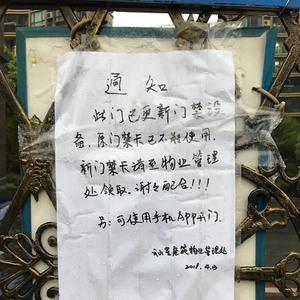 通知
此门已更新门禁设
备，原门禁卡已不能使用，
新门禁卡请至物业管理
处领取。谢谢配合!!!
另：可使用手机APP开门。
物业管理处